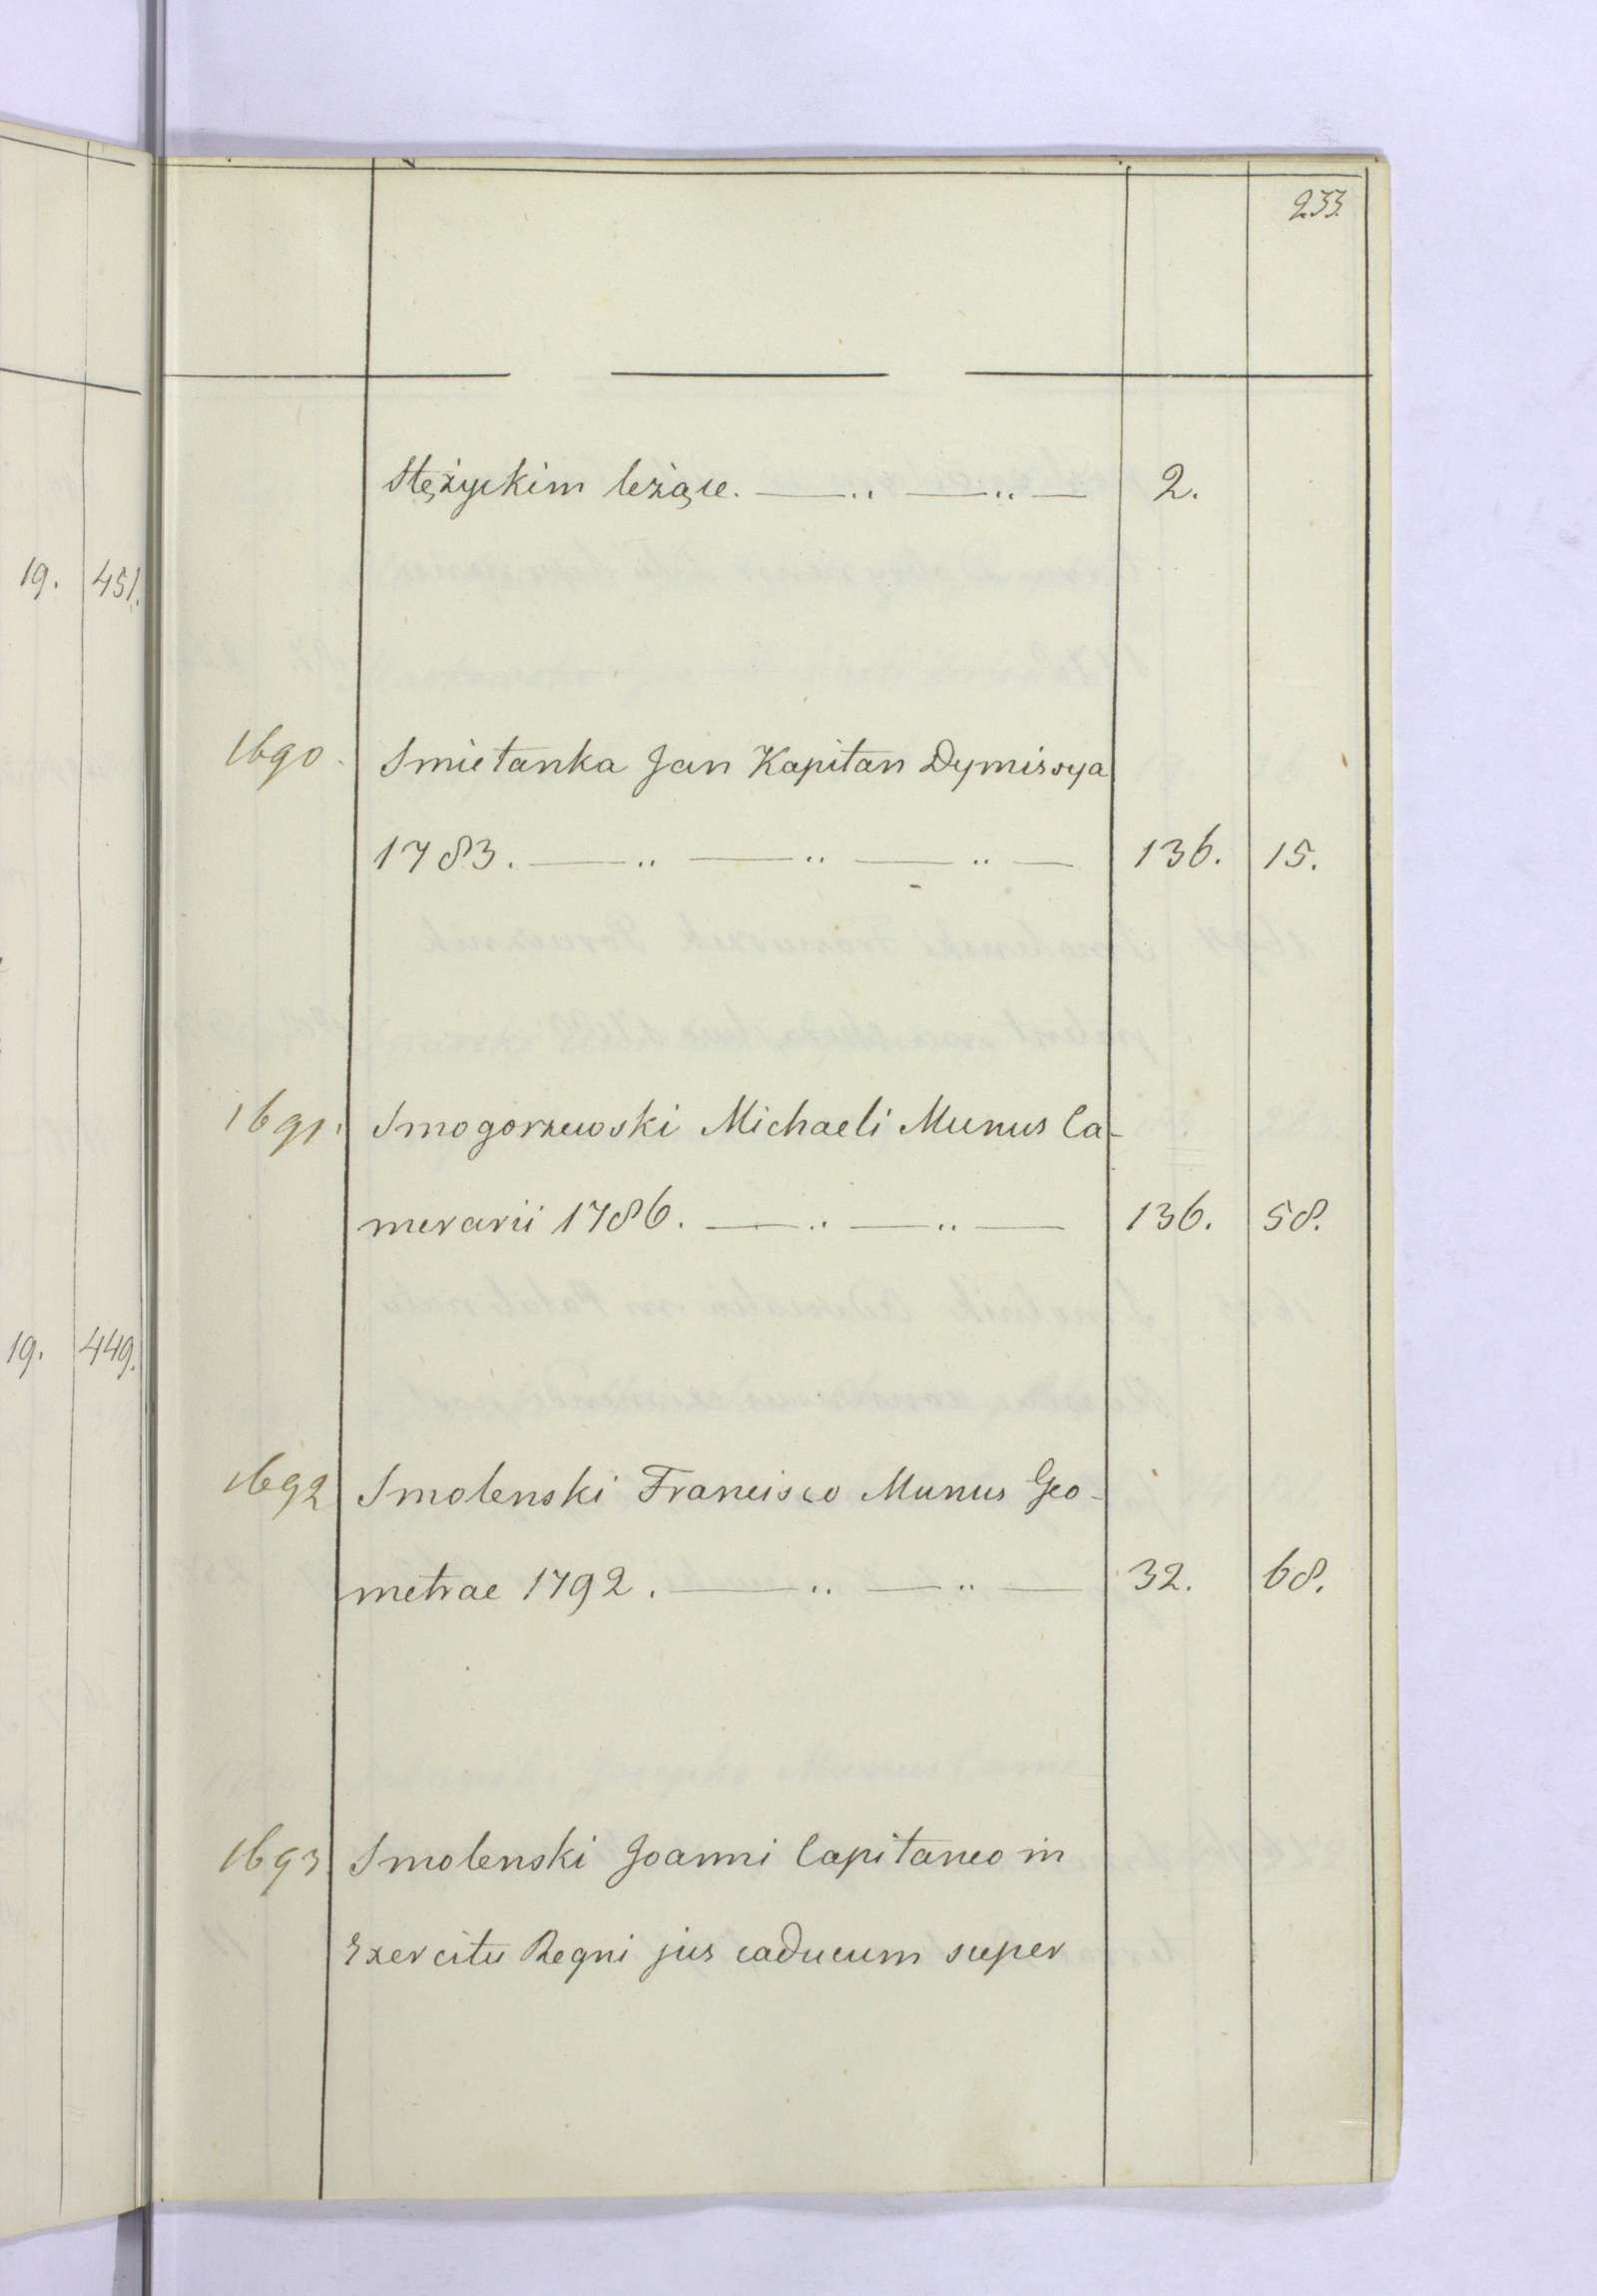 233.
Stężyckim leżące. —..—..— 2.
19. 451.
1690. Smietanka Jan Kapitan Dymissya
1783. —..—..—..— 136. 15.
1691. Smogorzewski Michaeli Munus Ca-
merarii 1786. —..—..— 136. 58.
19. 449.
1692 Smolenski Francisco Munus Geo-
metrae 1792. —..—..— 32. 68.
1693 Smolenski Joanni Capitaneo in
Exercitu Regni jus caducum super